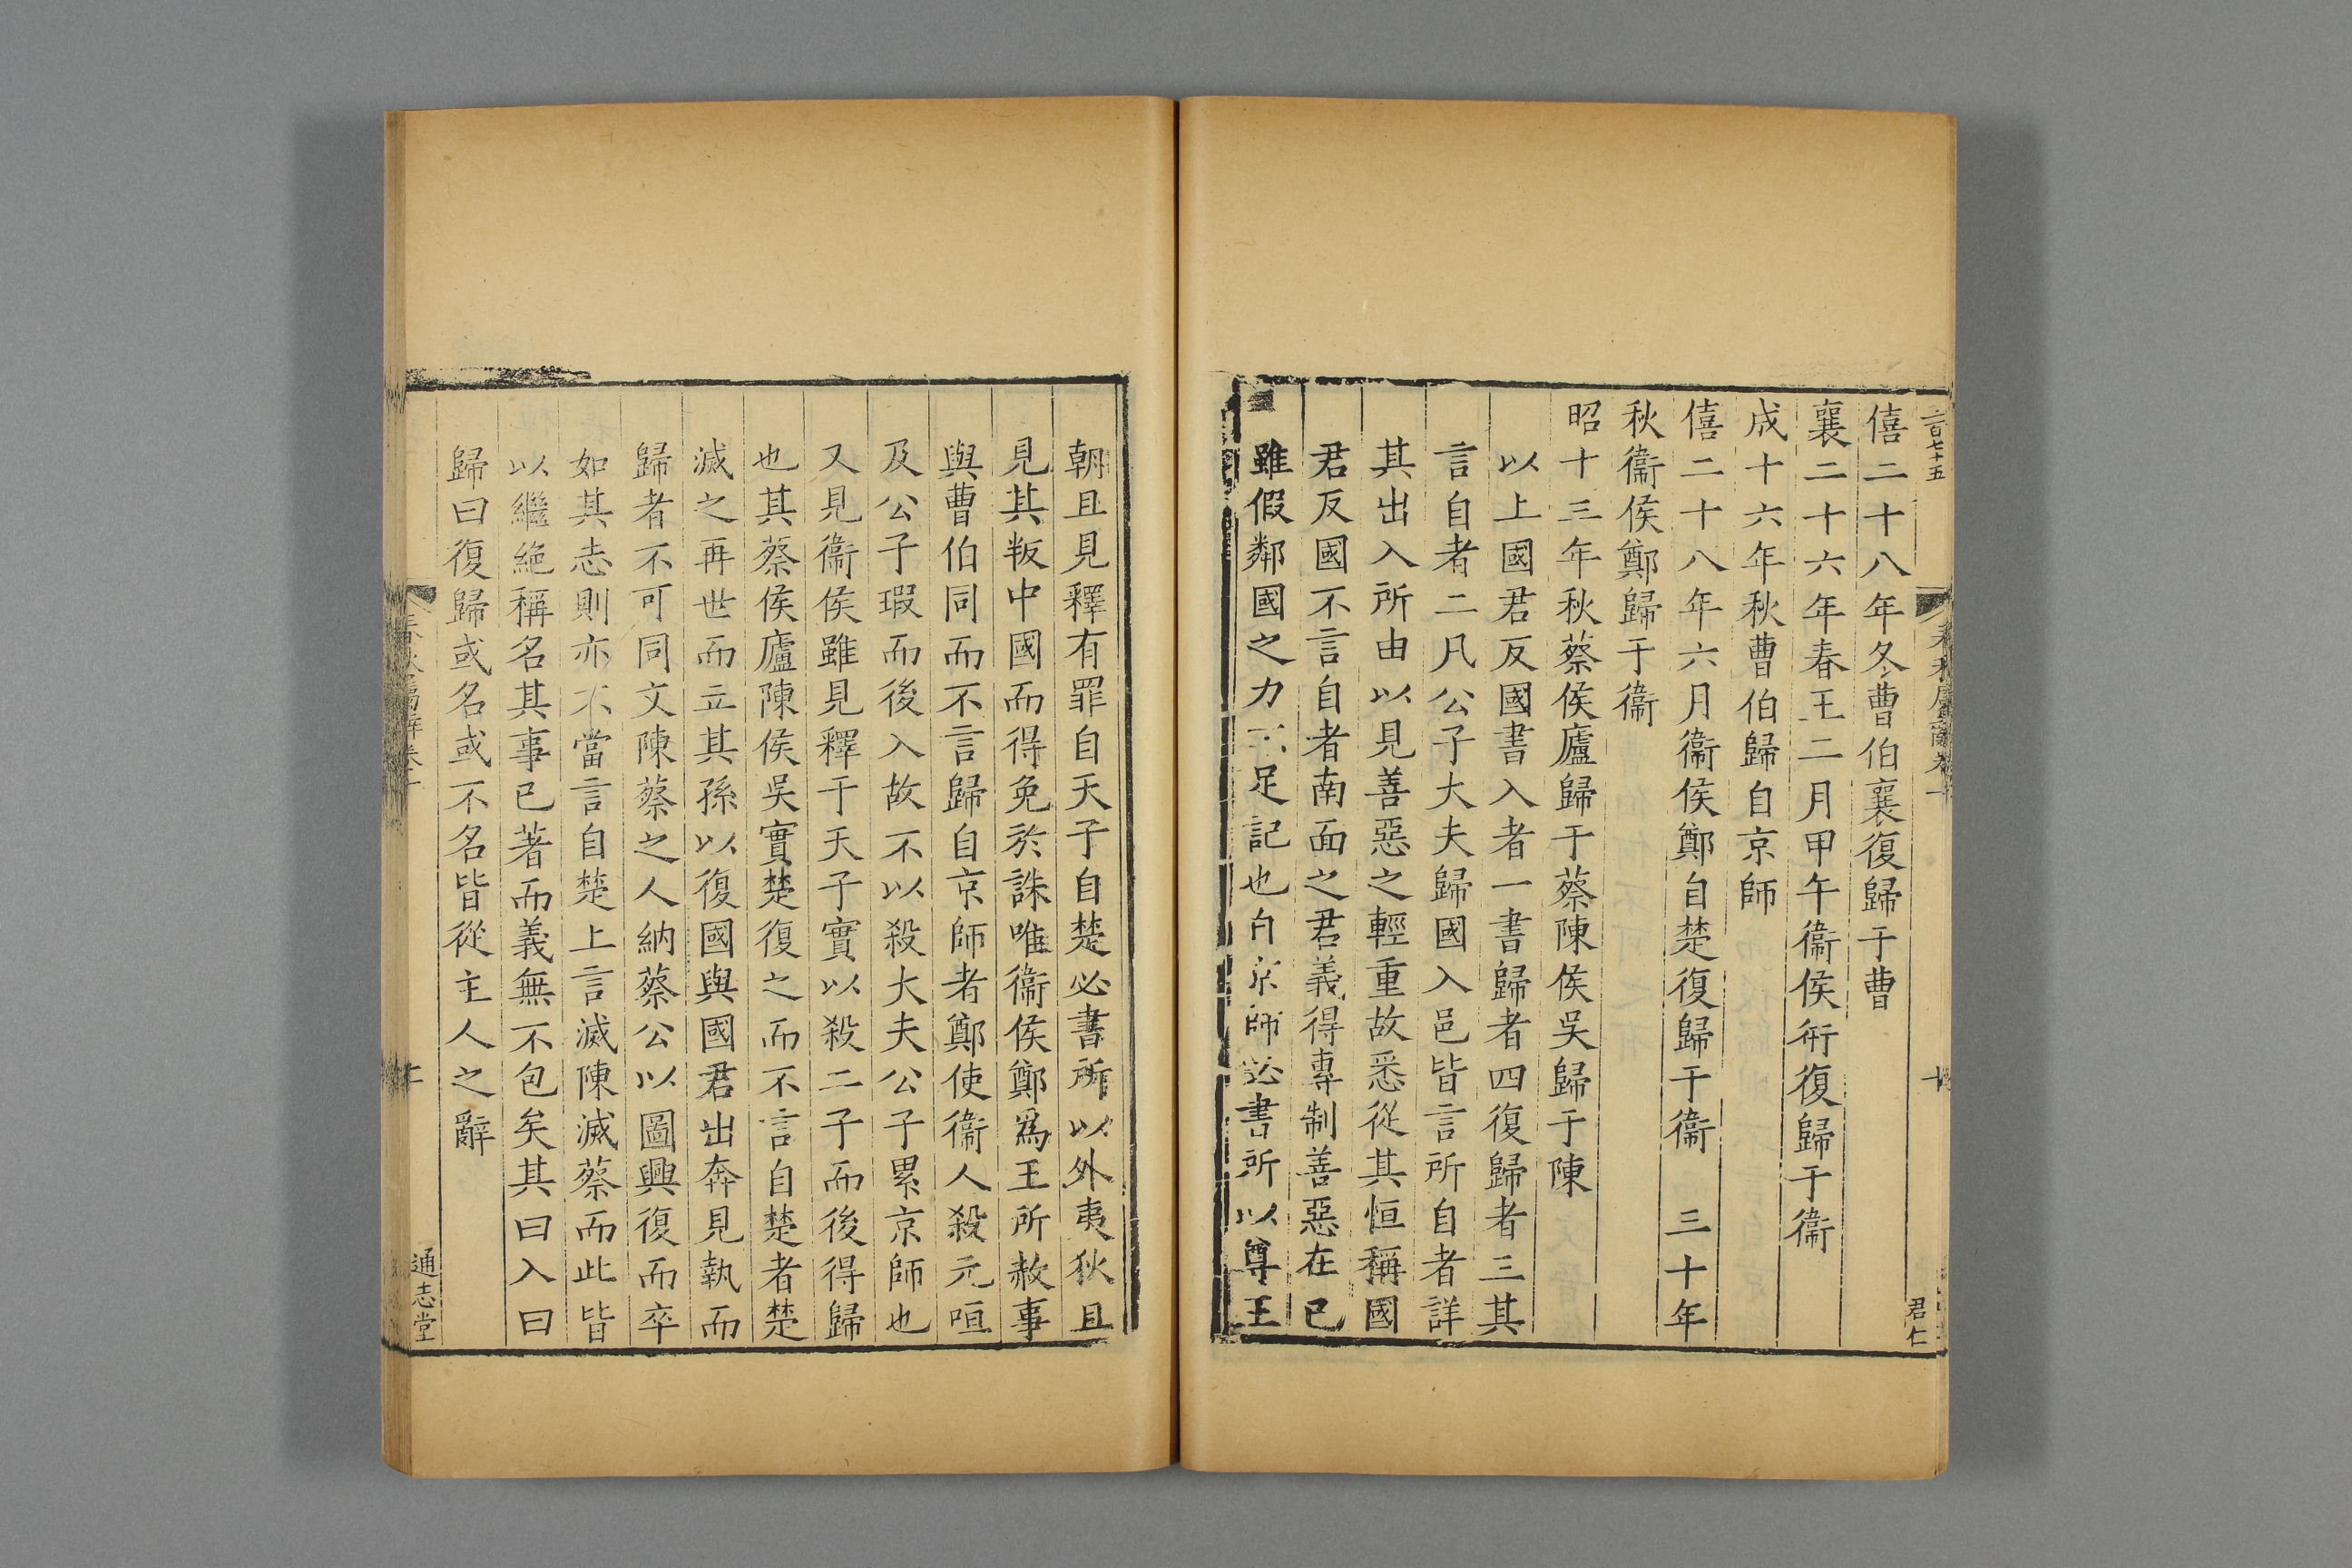 僖二十八年冬曹伯襄復歸于曹
襄二十六年春王二月甲午衞侯衎復歸于衞
成十六年秋曹伯歸自京師
僖二十八年六月衞侯鄭自楚復歸于衞 三十年
秋衞侯鄭歸于衞
昭十三年秋蔡侯廬歸于蔡陳侯吳歸于陳
以上國君反國書入者一書歸者四復歸者三其
言自者二凡公子大夫歸國入邑皆言所自者詳
其出入所由以見善惡之輕重故悉從其恒稱國
君反國不言自者南面之君義得專制善惡在已
雖假鄰國之力不足記也自京師必書所以尊王
君仁
朝且見釋有罪自天子自楚必書所以外夷狄且
見其叛中國而得免於誅唯衞侯鄭爲王所赦事
與曹伯同而不言歸自京師者鄭使衞人殺元咺
及公子瑕而後入故不以殺大夫公子累京師也
又見衞侯雖見釋于天子實以殺二子而後得歸
也其蔡侯廬陳侯吳實楚復之而不言自楚者楚
滅之再世而立其孫以復國與國君出奔見執而
歸者不可同文陳蔡之人納蔡公以圖興復而卒
如其志則亦不當言自楚上言滅陳滅蔡而此皆
以繼絕稱名其事已著而義無不包矣其曰入曰
歸曰復歸或名或不名皆從主人之辭
通志堂